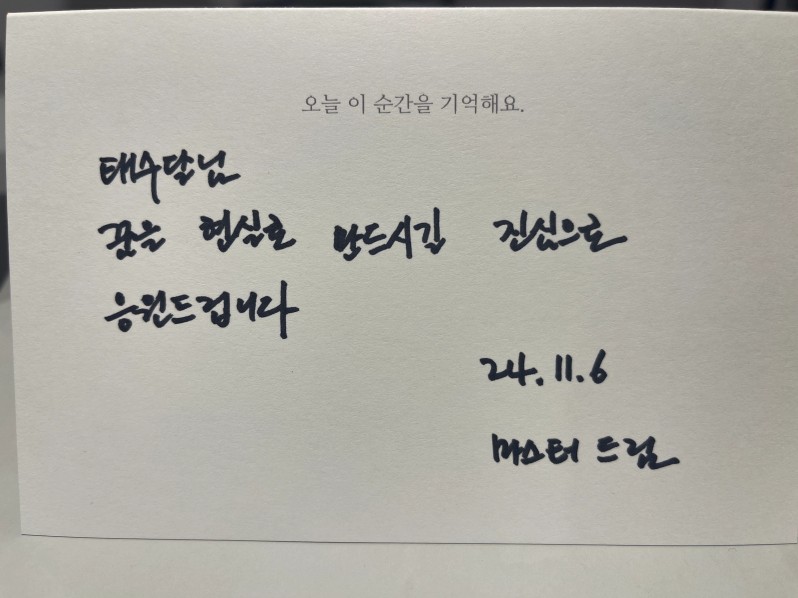 오늘 이 순간을 기억해요.
태수달님
꿈을 현실로 만드시길 진심으로
응원드립니다
24.11.6
마스터 드림